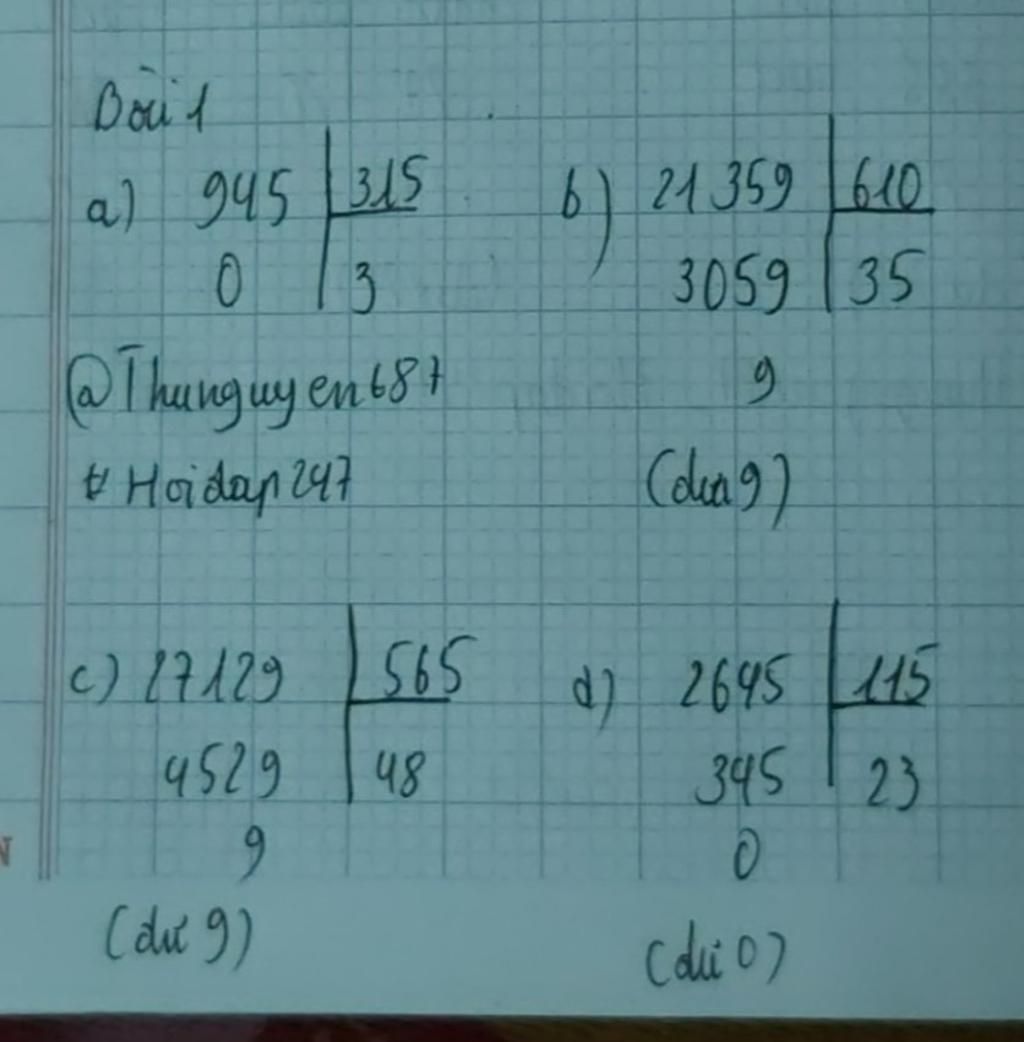 Bài 1
a) 945 315 b) 21 359 610
0 3 3059 35
@Thunguyen687 9
# Hoidap247 (dư 9)
c) 27129 565 d) 2645 115
4529 48 345 23
9 0
(dư 9) (dư 0)